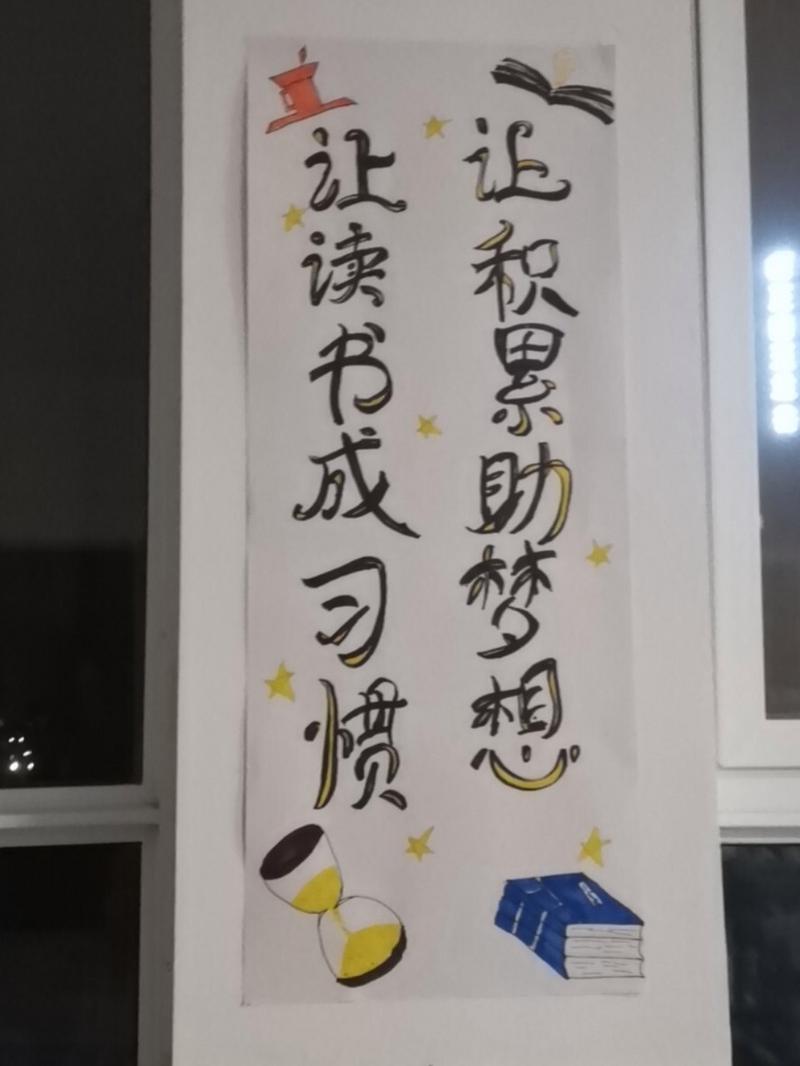 让读书成习惯
让积累助梦想